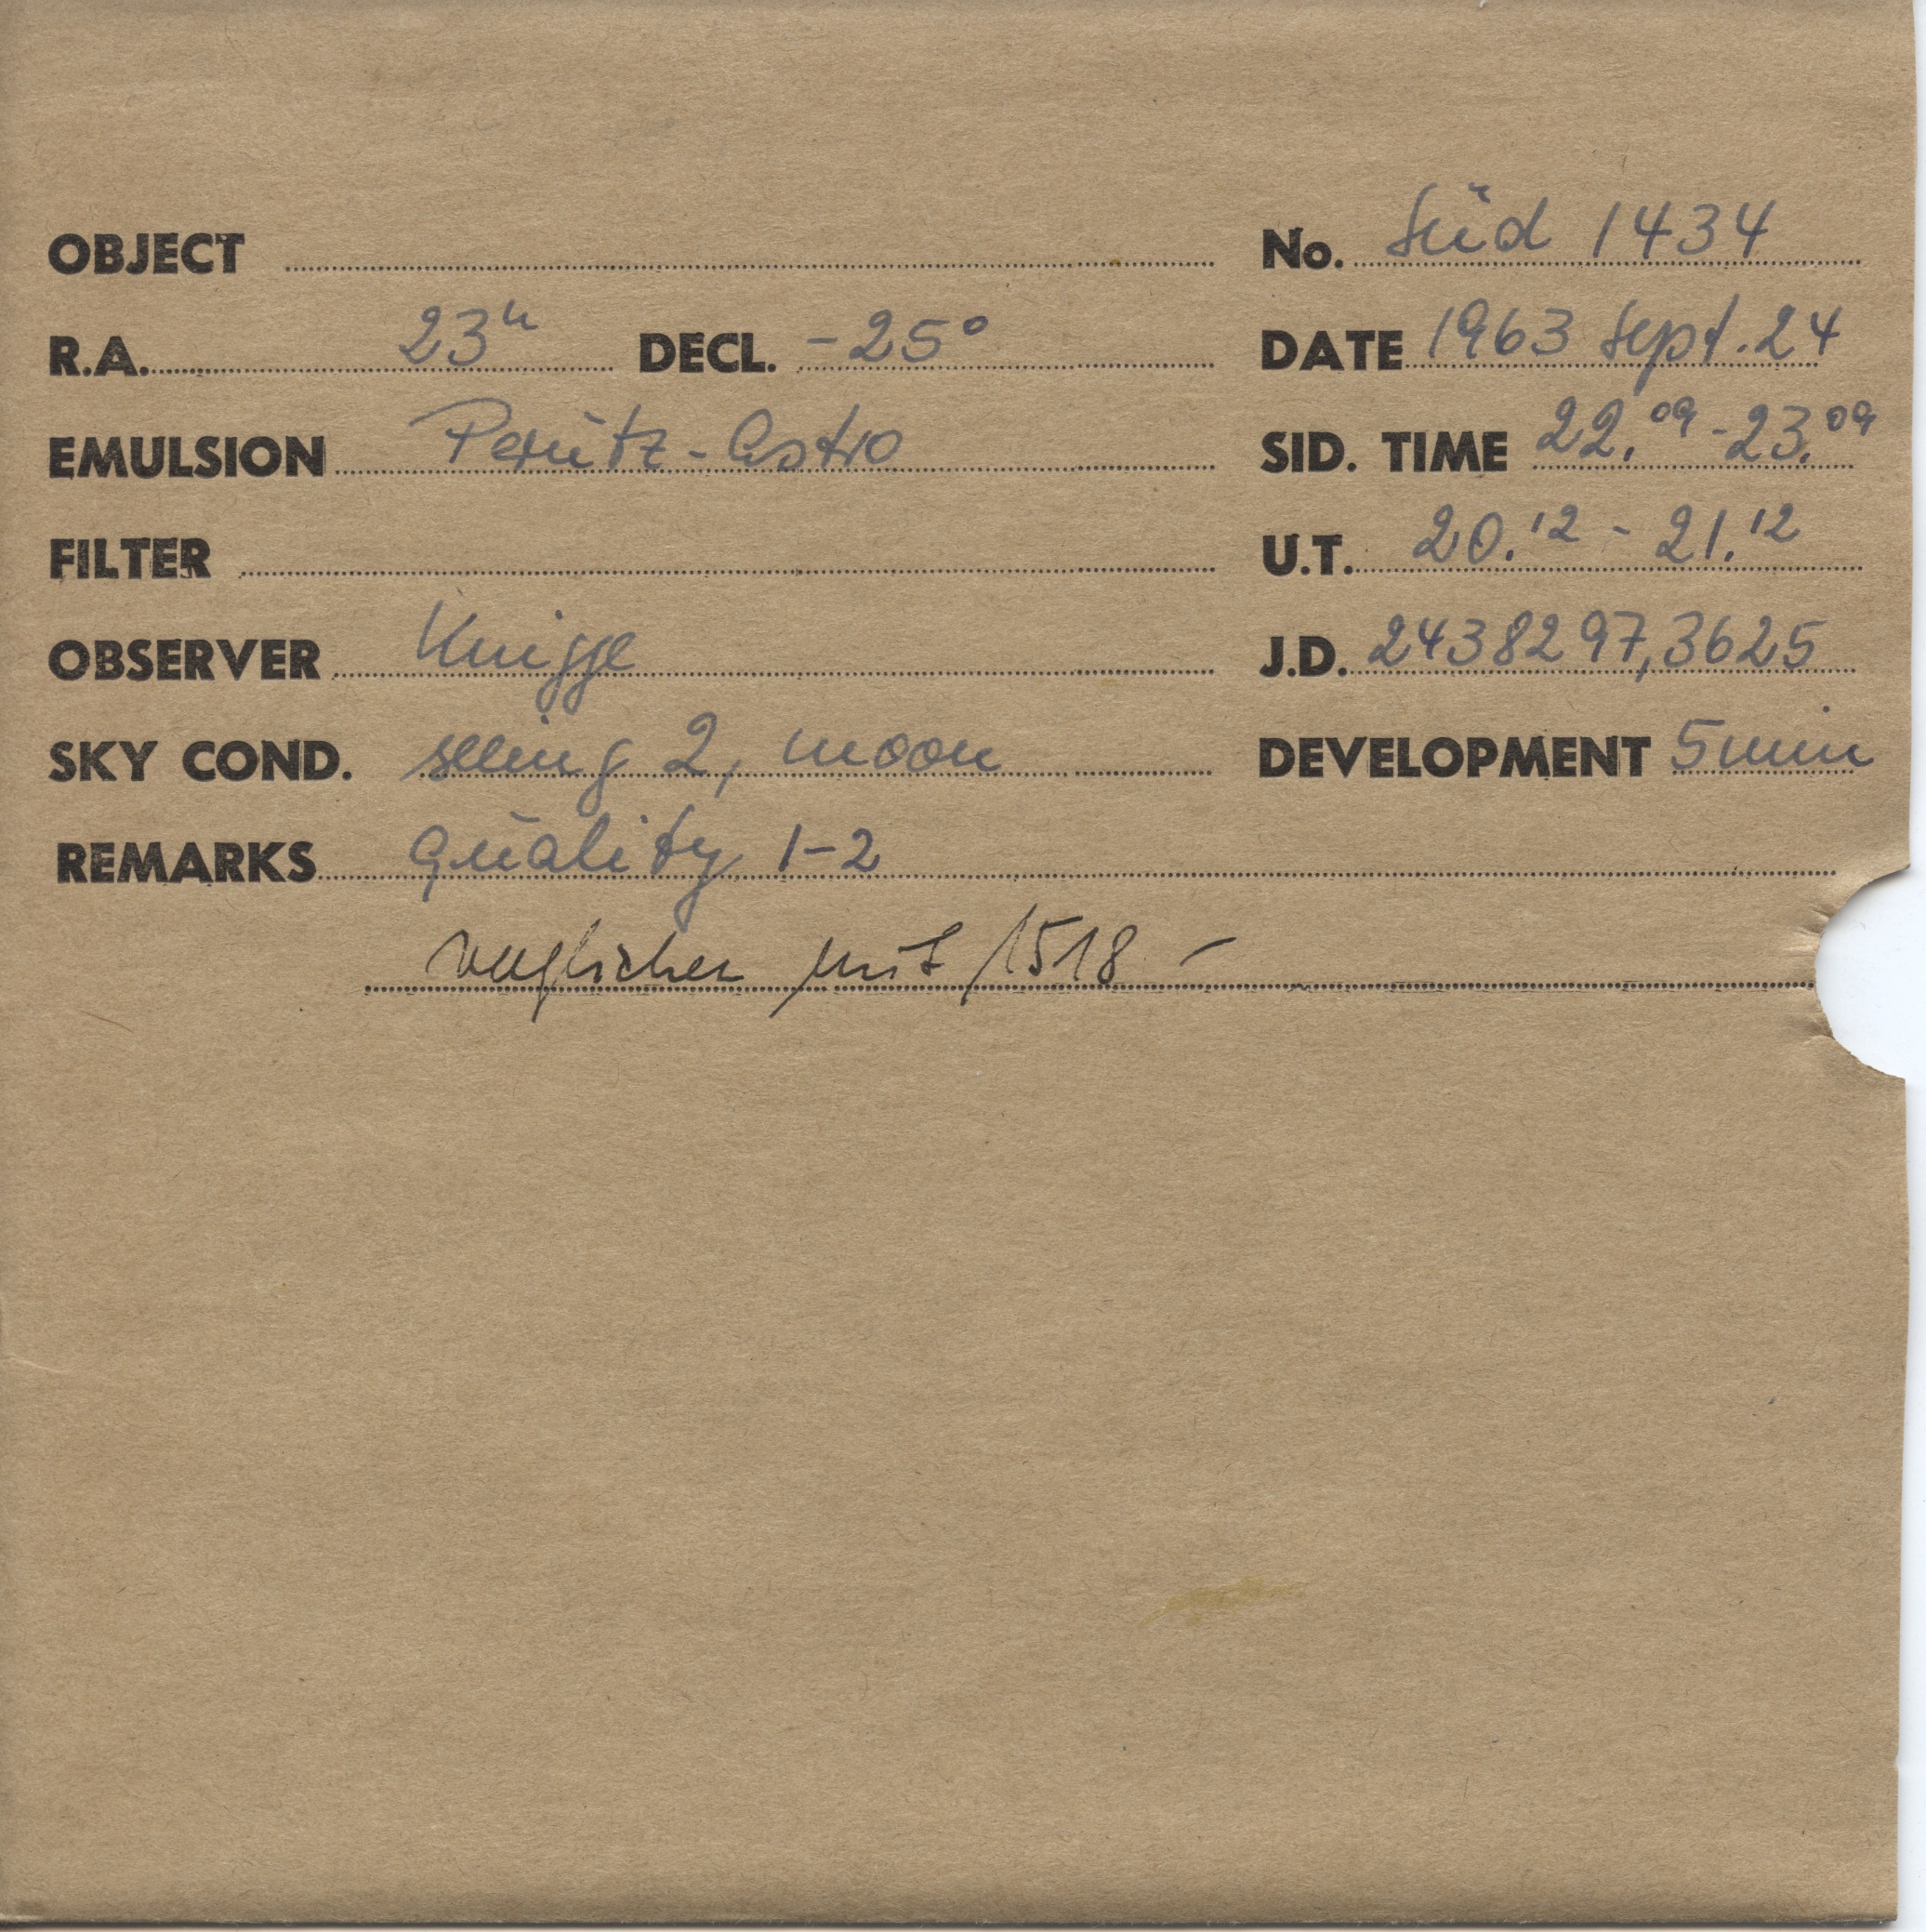 OBJECT No. Süd 1434
R.A. 23h DECL. -25° DATE 1963 Sept. 24
EMULSION Perutz-Astro SID. TIME 22.09 - 23.09
FILTER U.T. 20.12 - 21.12
OBSERVER Knigge J.D. 2438297,3625
SKY COND. seeing 2, moon DEVELOPMENT 5 min
REMARKS quality 1-2
verglichen mit 1518 -